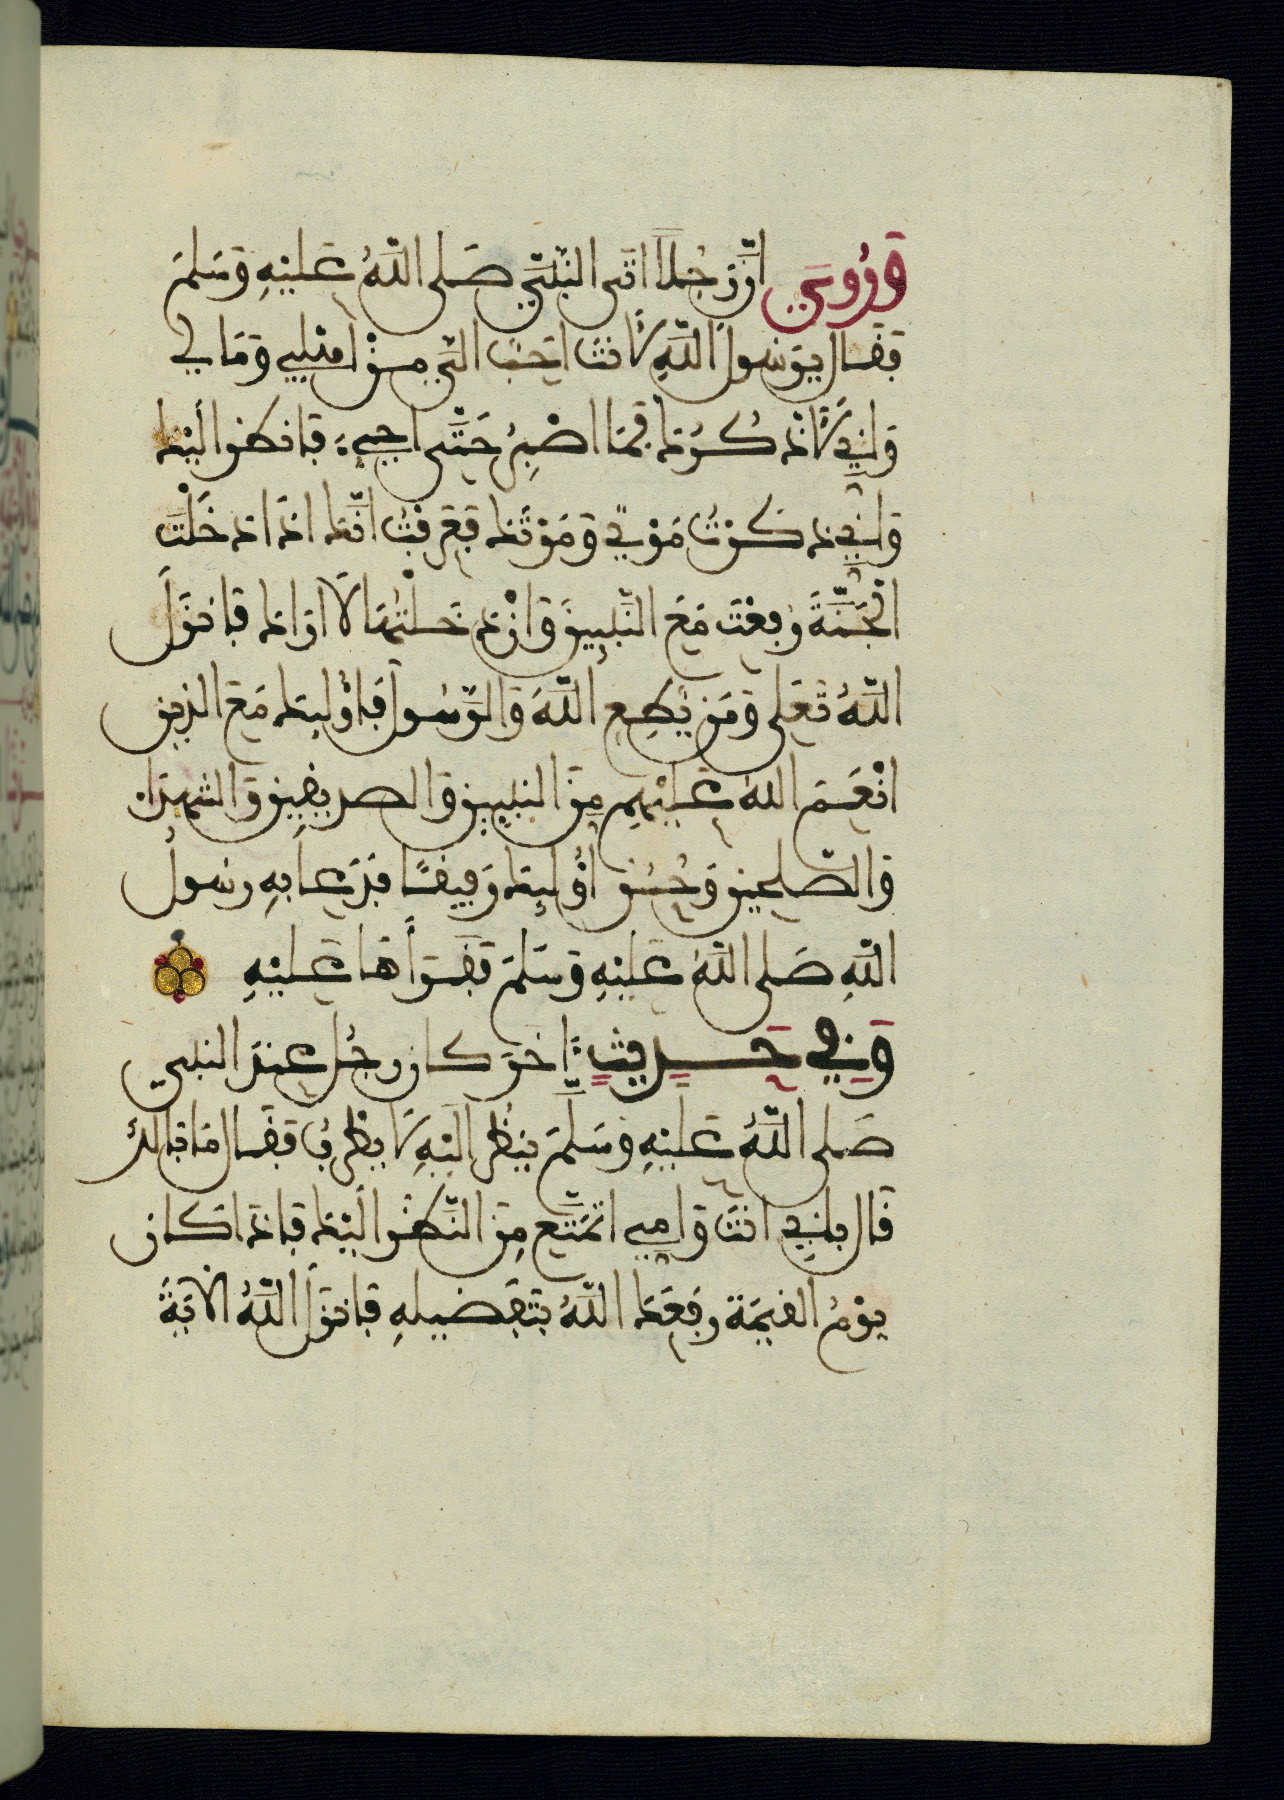 وَرُوِيَ أَنَّ رَجُلًا أَتَى النَّبِيَّ صَلَّى اللَّهُ عَلَيْهِ وَسَلَّمَ
فَقَالَ يَرَسُولَ اللَّهِ لَأَنْتَ أَحَبُّ إِلَيَّ مِنْ أَهْلِي وَمَالِي
وَإِنِّي لَأَذْكُرُكَ فَمَا أَصْبِرُ حَتَّى أَجِيءَ فَأَنْظُرَ إِلَيْكَ
وَإِنِّي ذَكَرْتُ مَوْتِي وَمَوْتَكَ فَعَرَفْتُ أَنَّكَ إِذَا دَخَلْتَ
الْجَنَّةَ رُفِعْتَ مَعَ النَّبِيِّينَ وَإِنْ دَخَلْتُهَا لَا أَرَاكَ فَأَنْزَلَ
اللَّهُ تَعَلَى وَمَنْ يُطِعِ اللَّهَ وَالرَّسُولَ فَأُوْلَئِكَ مَعَ الَّذِينَ
أَنْعَمَ اللَّهُ عَلَيْهِمْ مِنَ النَّبِيِّينَ وَالصِّدِّيقِينَ وَالشُّهَدَاءِ
وَالصَّلِحِينَ وَحَسُنَ أُوْلَئِكَ رَفِيقًا فَدَعَا بِهِ رَسُولُ
اللَّهِ صَلَّى اللَّهُ عَلَيْهِ وَسَلَّمَ فَقَرَأَهَا عَلَيْهِ
وَفِي حَدِيثٍ آخَرَ كَانَ رَجُلٌ عِنْدَ النَّبِيِّ
صَلَّى اللَّهُ عَلَيْهِ وَسَلَّمَ يَنْظُرُ إِلَيْهِ لَا يَطْرِفُ فَقَالَ مَا بَالُكَ
قَالَ بِأَبِي أَنْتَ وَأُمِّي أَتَمَتَّعُ مِنَ النَّظَرِ إِلَيْكَ فَإِذَا كَانَ
يَوْمُ الْقِيَمَةِ رَفَعَكَ اللَّهُ بِتَفْضِيلِهِ فَأَنْزَلَ اللَّهُ الْآيَةَ